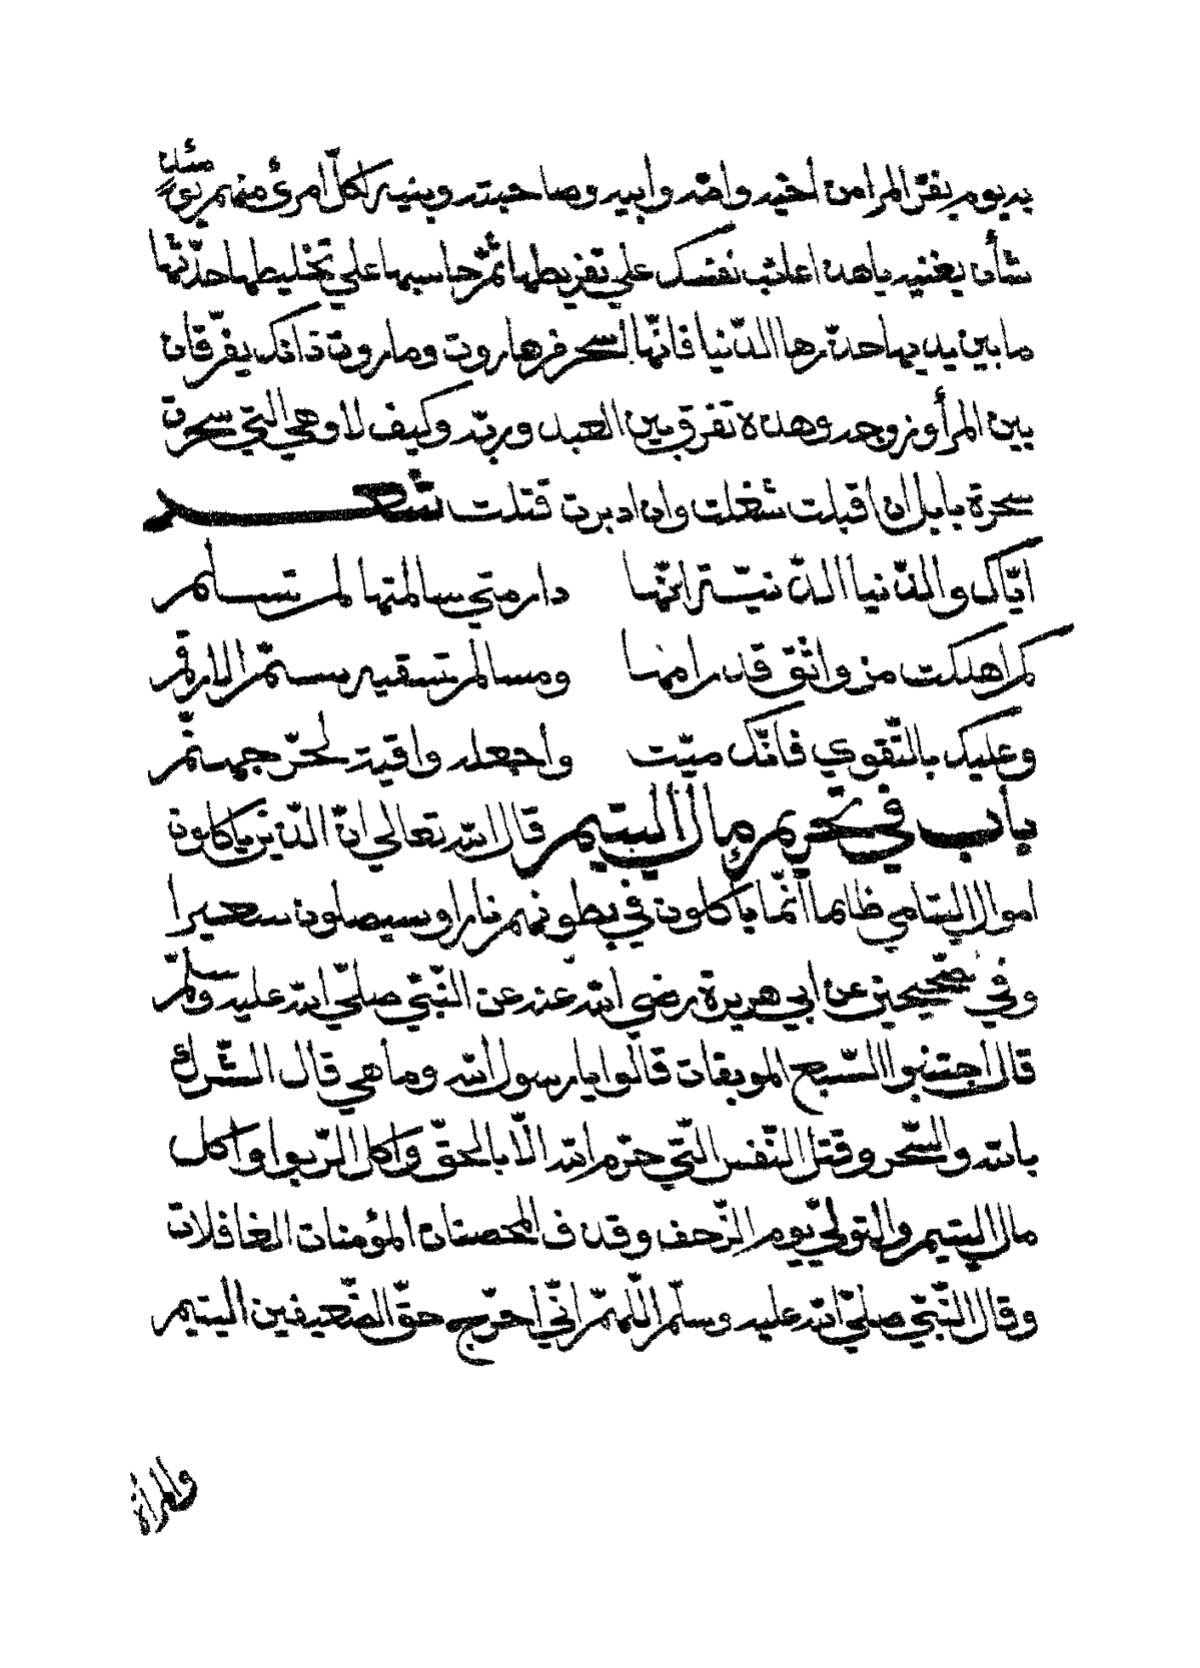 يه يوم يفرّ المرا من أخيه وامّه وابيه وصاحبته وبنيه لكلّ امرئ منهم يومئذ
شأن يغنيه ياهذا عاتب نفسك علي تفريطها ثمّ حاسبها علي تخليطها حدّثها
ما بين يديها حذّرها الدّنيا فانّها السحر فهاروت وماروت ذانك يفرّقان
بين المرأ وزوجه وهذه تفرق بين العبد وربّه وكيف لا وهي التي سحرت
سحرة بابل ان اقبلت شغلت وان ادبرت قتلت شعر
ايّاك والدّنيا الدّنيّة انّها دار متي سالمتها لم تسلم
كم اهلكت من واثق قد رامها ومسالم تسقيه سمّ الارقم
وعليك بالتّقوي فانّك ميّت واجعله واقية لحرّ جهنّم
باب في تحريم مال اليتيم قال الله تعالي انّ الّذين ياكلون
اموال اليتامي ظالما انّما يأكلون في بطونهم نارا وسيصلون سعيرا
وفي صّحيحين عن ابي هريرة رضي الله عنه عن النّبيّ صلّي الله عليه وسلّم
قال اجتنبوا السّبع الموبقات قالوا يا رسول الله وما هي قال الشّرك
بالله والسّحر وقتل النّفس الّتي حرّم الله الّا بالحقّ واكل الرّبوا واكل
مال اليتيم والتولّي يوم الزّحف وقذف المحصنات المؤمنات الغافلات
وقال النّبيّ صلّي الله عليه وسلّم اللّهمّ انّي احرّج حقّ الضّعيفين اليتيم
والمرأة